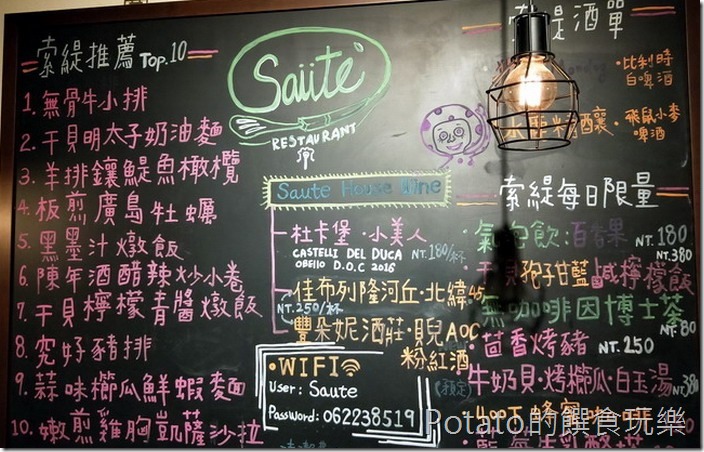 索緹推薦 Top.10
1. 無骨牛小排
2. 干貝明太子奶油麵
3. 羊排鑲鯷魚橄欖
4. 板煎廣島牡蠣
5. 黑墨汁燉飯
6. 陳年酒醋辣炒小卷
7. 干貝檸檬青醬燉飯
8. 究好豬排
9. 蒜味櫛瓜鮮蝦麵
10. 嫩煎雞胸凱薩沙拉
Saüte
RESTAURANT
Saute House Wine
杜卡堡·小美人
CASTELLI DEL DUCA NT.180/杯
OBELLO D.O.C 2016
佳布列隆河丘·北緯45
NT.250/杯
豐朵妮酒莊·貝兒AOC
粉紅酒
·WIFI
User: Saute
Password: 062238519
索緹酒單
·比利時
白啤酒
釀·飛鼠小麥
啤酒
索緹每日限量
·氣泡飲:百香果 NT.180
NT.380
孢子甘藍鹹檸檬飯
無咖啡因博士茶
NT.80
·茴香烤豬 NT.250
(預定)
牛奶貝·烤櫛瓜·白玉湯 NT.380
Potato的饌食玩樂